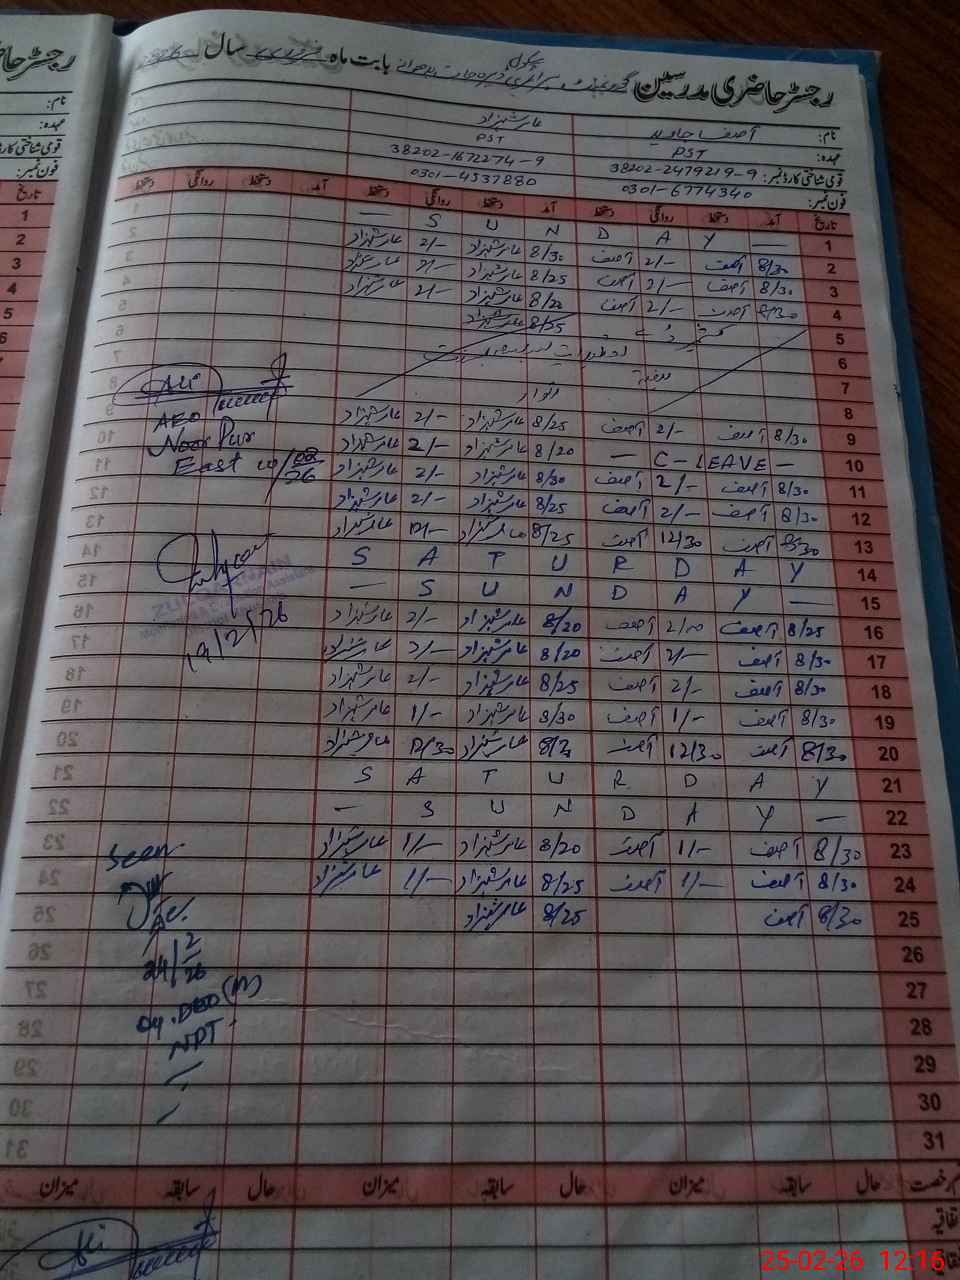 رجسٹر حاضری مدرسین گورنمنٹ پرائمری سکول بابت ماہ فروری سال
نام: آصف جاوید عامر شہزاد
عہدہ: PST PST
قومی شناختی کارڈ نمبر: 38202-2479219-9 38202-1672274-9
فون نمبر: 0301-6774340 0301-4537880
تاریخ آمد دستخط روانگی دستخط آمد دستخط روانگی دستخط آمد دستخط روانگی دستخط
1 — S U N D A Y —
2 8/30 آصف 2/- آصف 8/30 عامر شہزاد 2/- عامر شہزاد
3 8/30 آصف 2/- آصف 8/25 عامر شہزاد 2/- عامر شہزاد
4 8/30 آصف 2/- آصف 8/20 عامر شہزاد 2/- عامر شہزاد
5 8/25 عامر شہزاد
6
7
8 اتوار
9 8/30 آصف 2/- آصف 8/25 عامر شہزاد 2/- عامر شہزاد
10 — C-LEAVE — 8/20 عامر شہزاد 2/- عامر شہزاد
11 8/30 آصف 2/- آصف 8/30 عامر شہزاد 2/- عامر شہزاد
12 8/30 آصف 2/- آصف 8/25 عامر شہزاد 2/- عامر شہزاد
13 آصف 12/30 آصف 8/25 عامر شہزاد عامر شہزاد
14 S A T U R D A Y
15 — S U N D A Y —
16 8/25 آصف 2/- آصف 8/20 عامر شہزاد 2/- عامر شہزاد
17 8/30 آصف 2/- آصف 8/20 عامر شہزاد 2/- عامر شہزاد
18 8/30 آصف 2/- آصف 8/25 عامر شہزاد 2/- عامر شہزاد
19 8/30 آصف 1/- آصف 8/30 عامر شہزاد 1/- عامر شہزاد
20 8/30 آصف 12/30 آصف عامر شہزاد 12/30 عامر شہزاد
21 S A T U R D A Y
22 — S U N D A Y —
23 8/30 آصف 1/- آصف 8/20 عامر شہزاد 1/- عامر شہزاد
24 8/30 آصف 1/- آصف 8/25 عامر شہزاد 1/- عامر شہزاد
25 8/30 آصف 8/25 عامر شہزاد
26
27
28
29
30
31
حال سابقہ میزان حال سابقہ میزان حال سابقہ میزان
اتفاقیہ
AEO
Noor Pur
East 10/02/26
19/2/26
Seen
24/2/26
Dy. DEO (M)
NPT
رجسٹر
نام:
عہدہ:
فون نمبر:
تاریخ
1
2
3
4
5
25-02-26 12:16